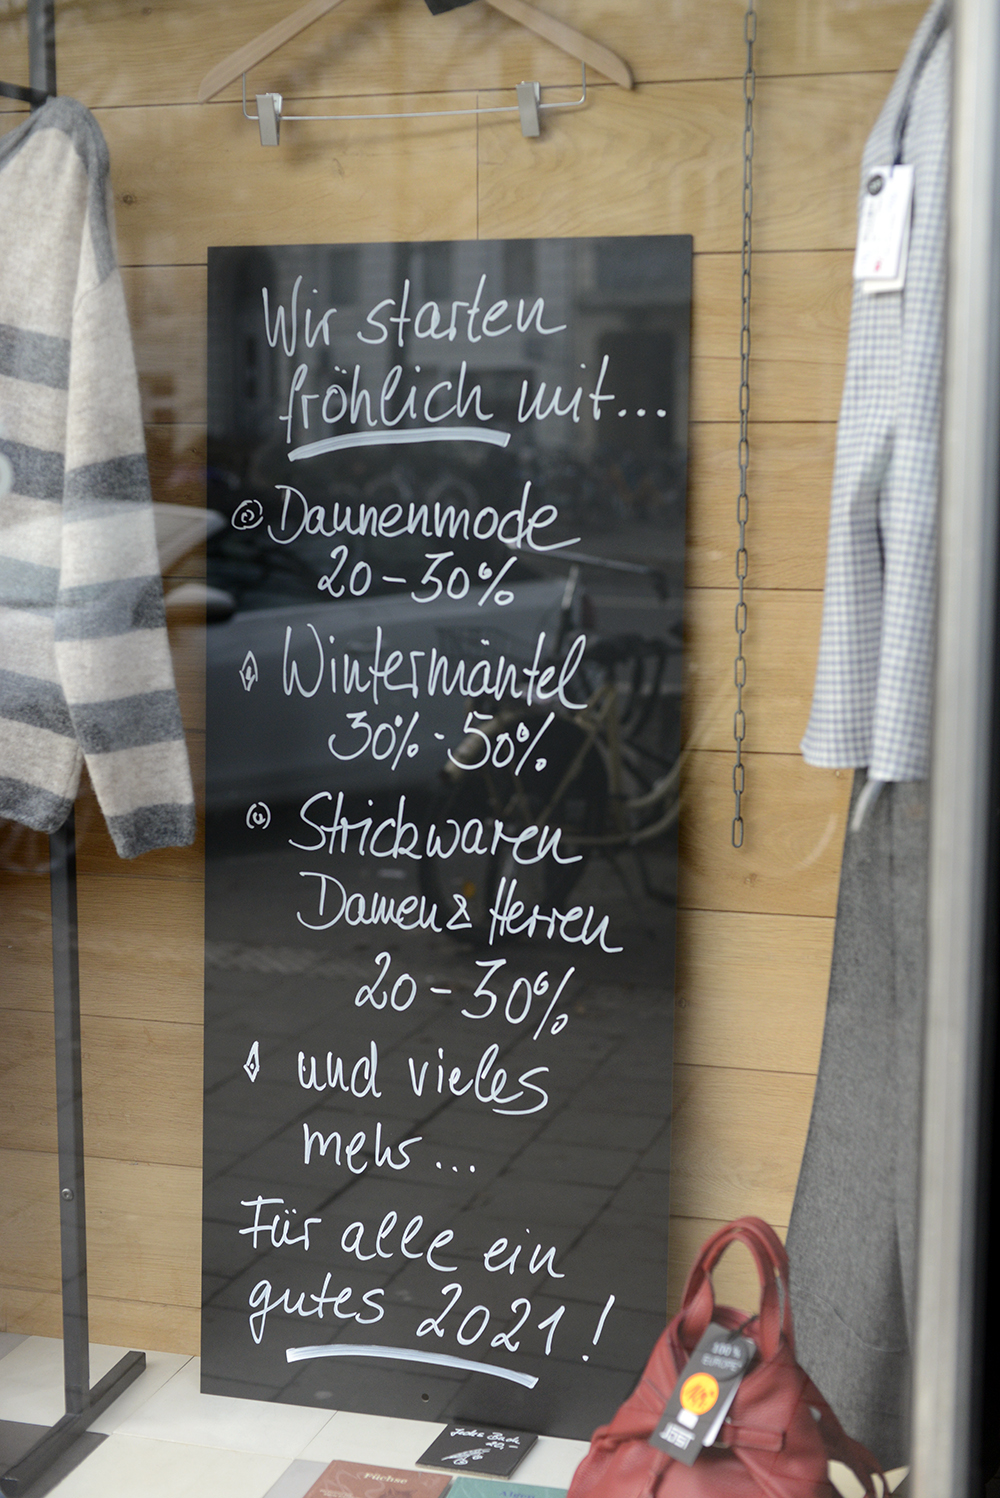 Wir starten
fröhlich mit...
Daunenmode
20-30%
Wintermäntel
30%-50%
Strickwaren
Damen & Herren
20-30%
und vieles
mehr...
Für alle ein
gutes 2021!
Jedes Buch
20,-
Füchse
Algen
100%
EUROPE
JOST